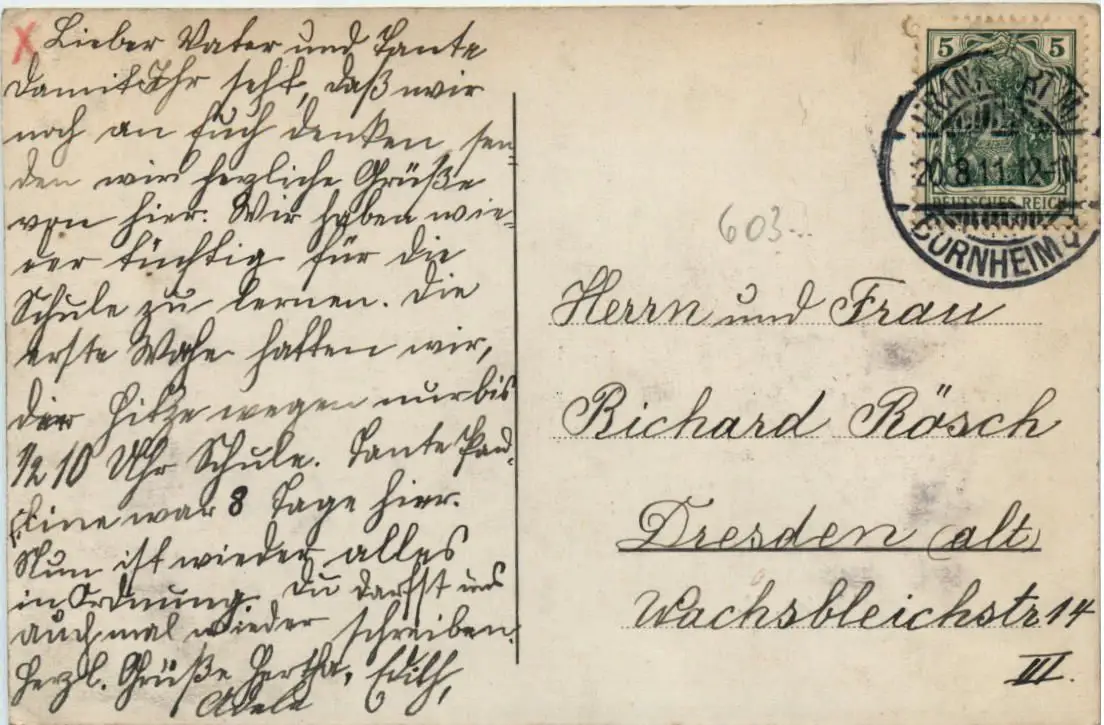 X Lieber Vater und Tante
damit Ihr seht, daß wir
noch an Euch denken, sen-
den wir herzliche Grüße
von hier. Wir haben wie-
der tüchtig für die
Schule zu lernen. Die
erste Woche hatten wir,
der Hitze wegen nur bis
1/2 10 Uhr Schule. Tante Pau-
line war 8 Tage hier.
Nun ist wieder alles
in Ordnung. Du darfst uns
auch mal wieder schreiben.
Herzl. Grüße Hertha, Edith,
Adele
5 5
DEUTSCHES REICH
FRANKFURT (M.)
20.8.11.12-1N.
BORNHEIM
603
Herrn und Frau
Richard Rösch
Dresden (alt
Wachsbleichstr 14
III.